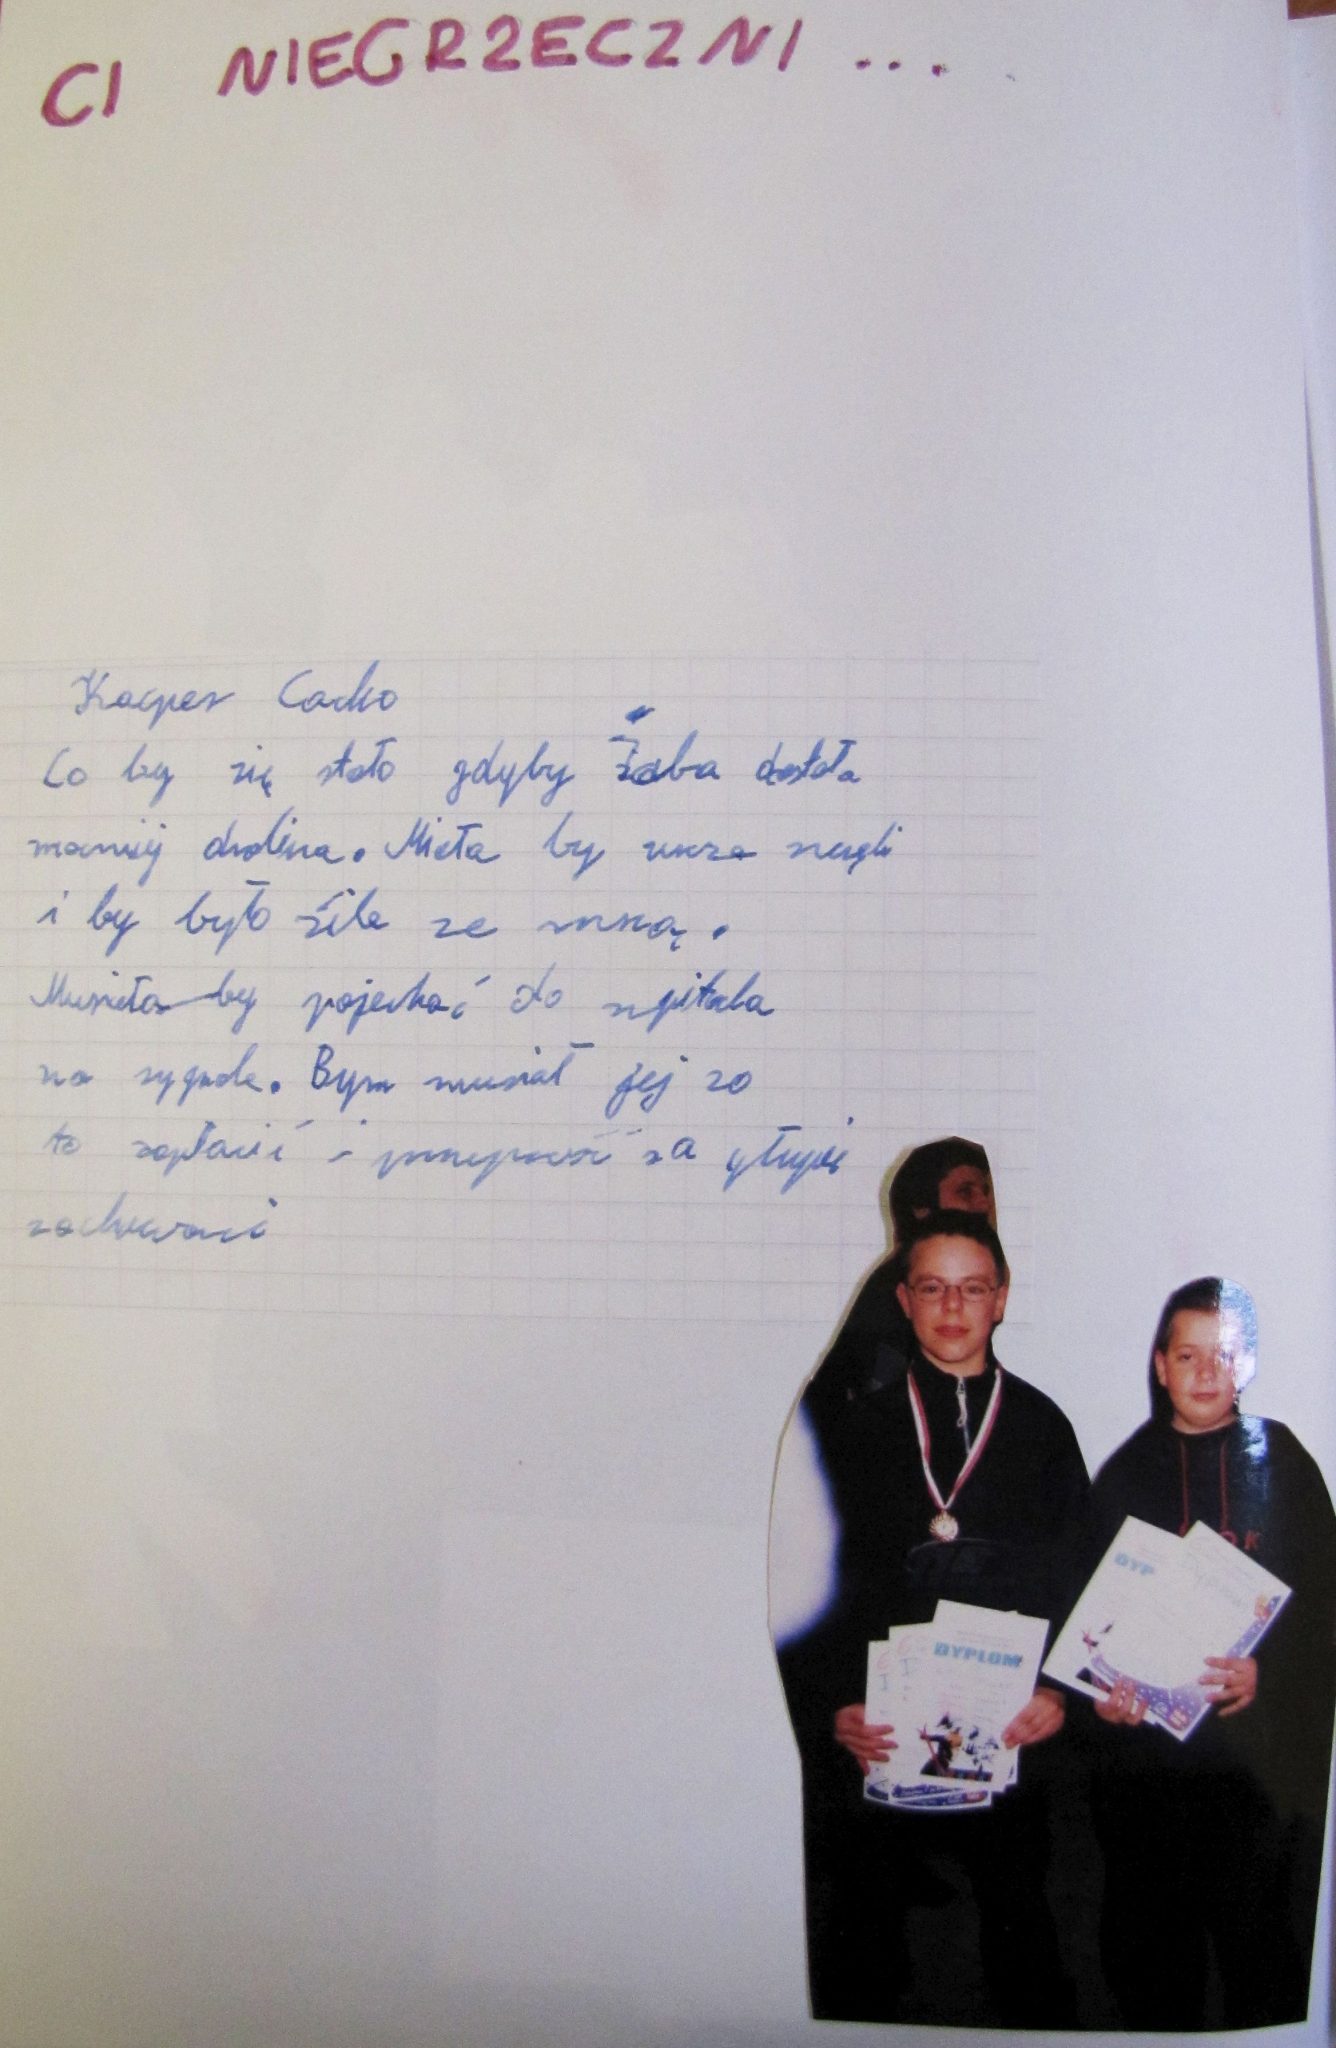 CI NIEGRZECZNI ...
Kacper Cacko
Co by się stało gdyby Żaba dostała
mocniej drobina. Miała by uraz nogi
i by było źle ze mną.
Musiała by pojechać do szpitala
na sygnale. Bym musiał jej za
to zapłacić i przeprosić za głupie
zachowanie
DYPLOM
DYP